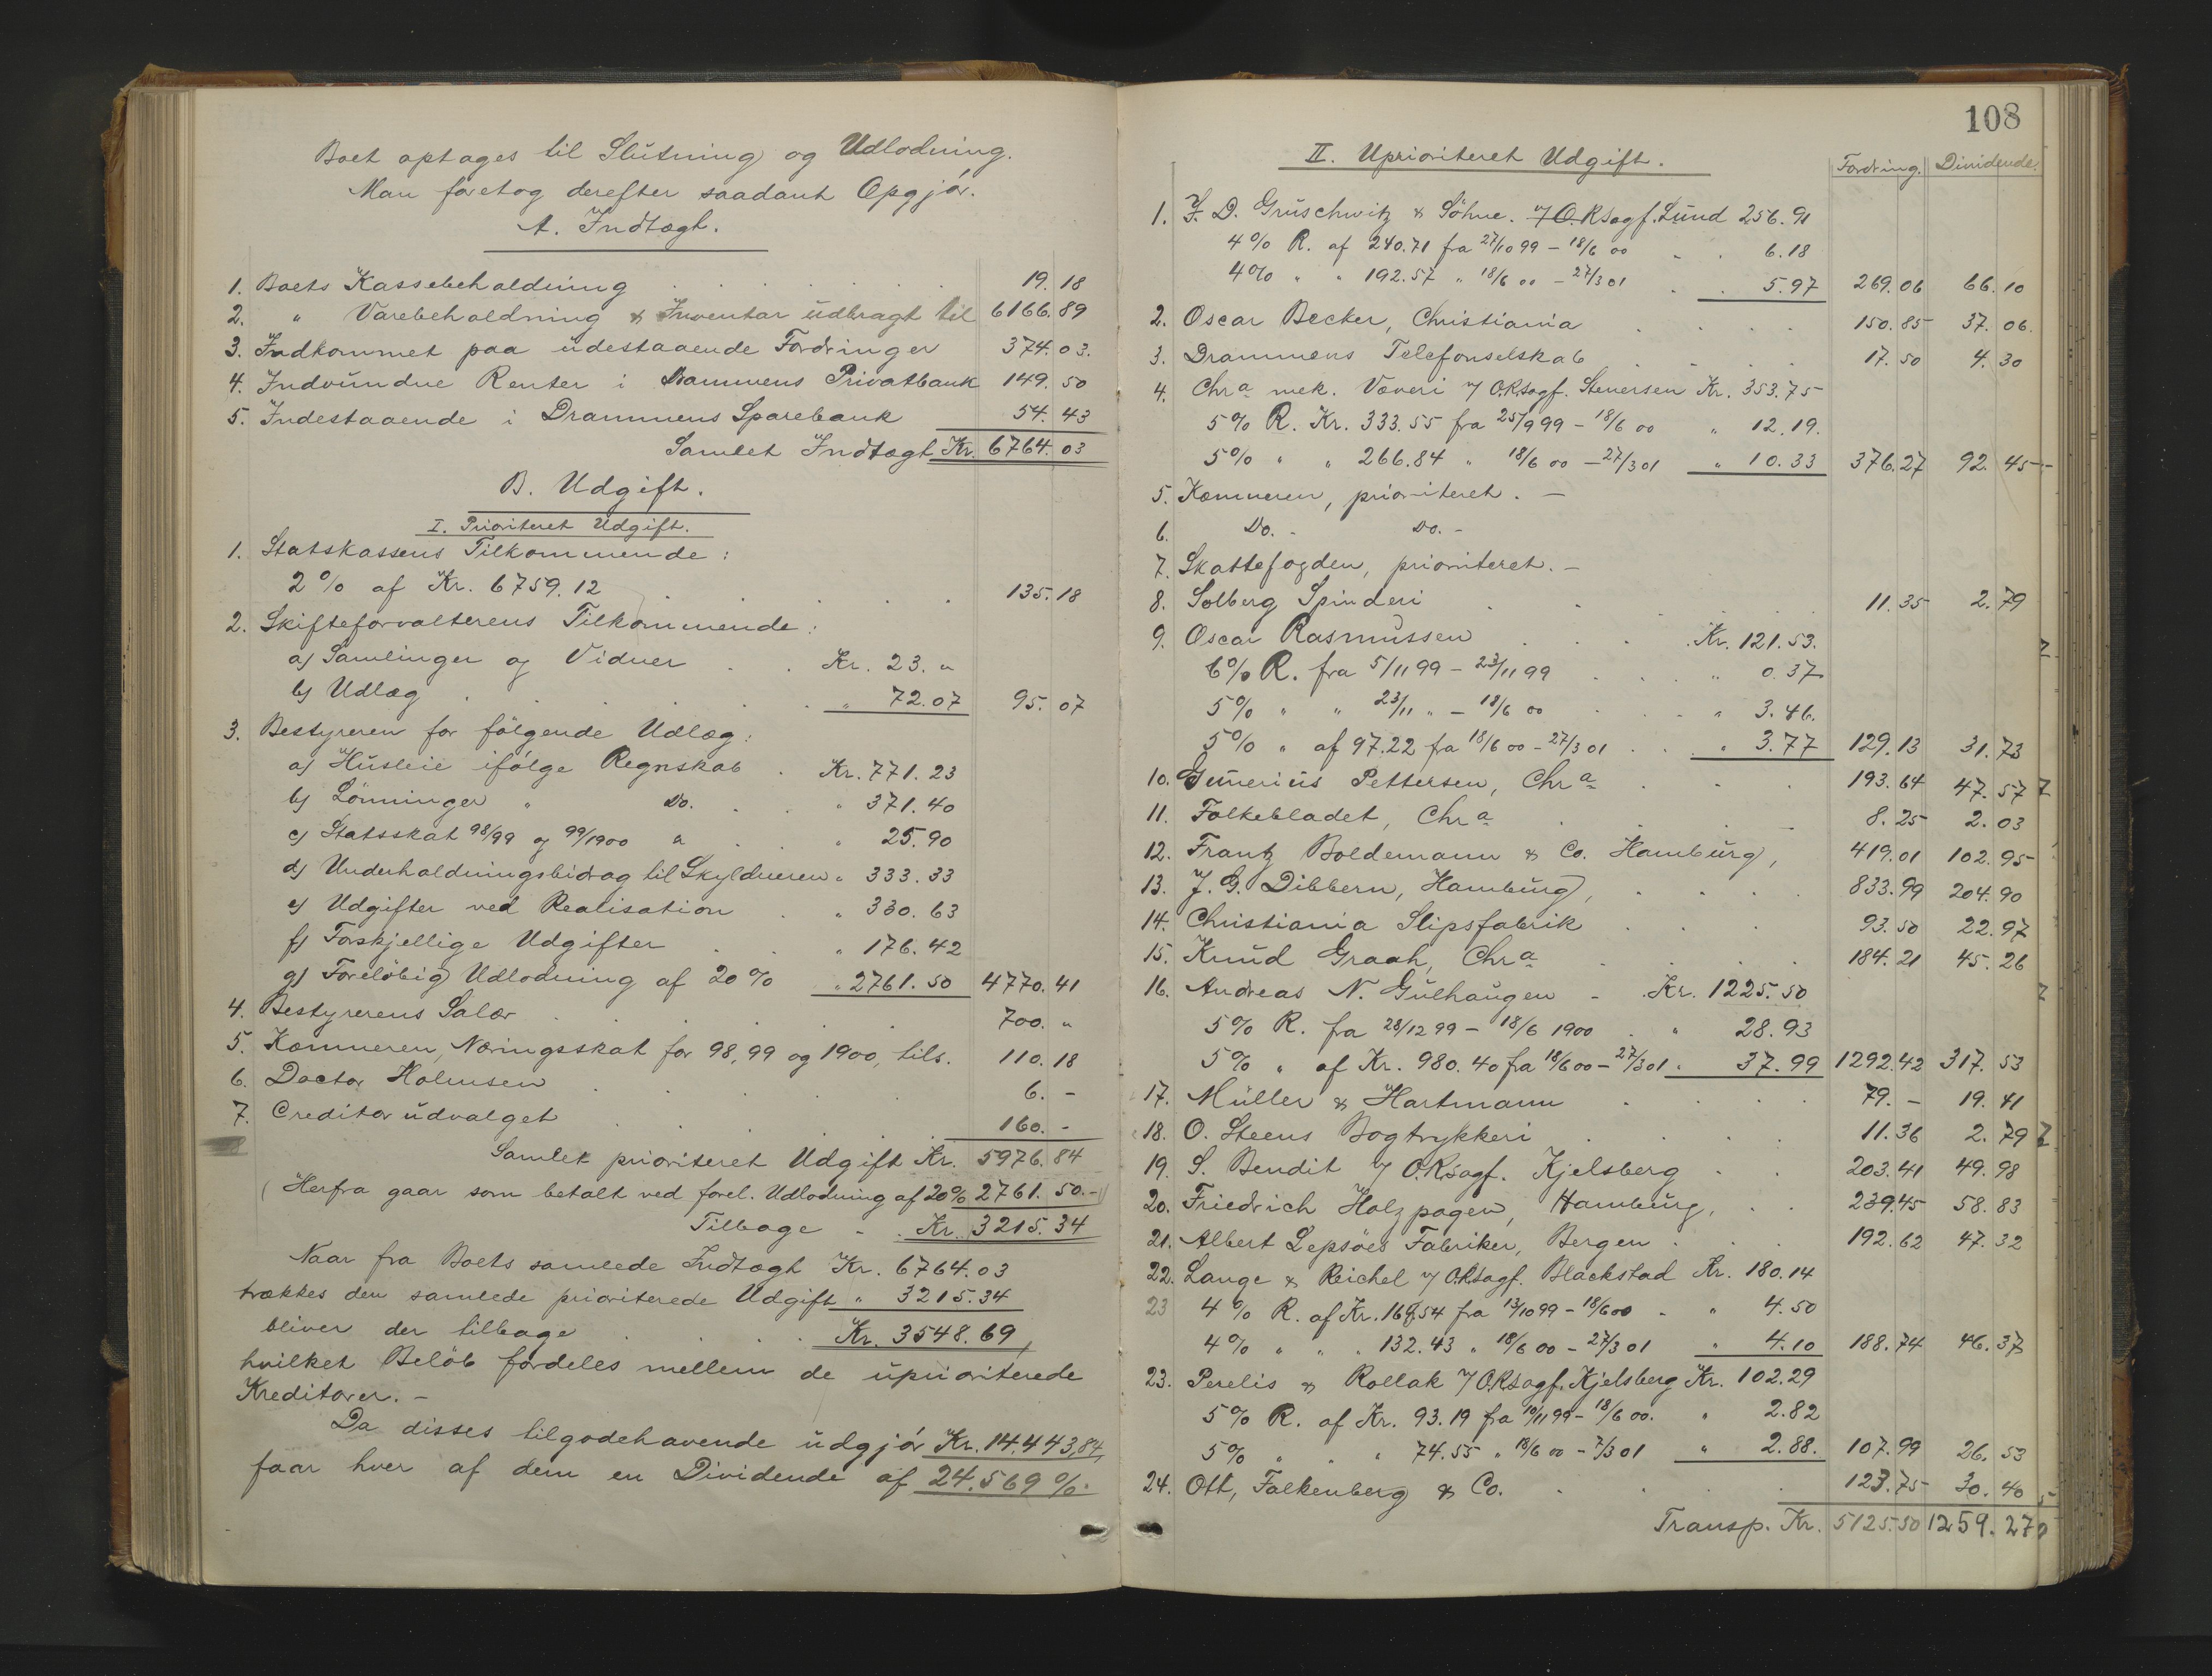 Boet optages til Slutning og Udlodning.
Man foretog derefter saadant Opgjör.
A. Indtægt.
1. Boets Kassebeholdning . . . . . . 19. 18
2. " Varebeholdning & Inventar udbragt til 6166. 89
3. Indkommet paa udestaaende Fordringer 374. 03.
4. Indvundne Renter i Drammens Privatbank 149. 50
5. Indestaaende i Drammens Sparebank 54. 43
Samlet Indtægt Kr. 6764. 03
B. Udgift.
I. Prioriteret Udgift.
1. Statskassens Tilkommende:
2% af Kr. 6759.12 . . . . . 135. 18
2. Skifteforvalterens Tilkommende:
a) Samlinger og Vidner . . Kr. 23. "
b) Udlæg . . . . . " 72.07 95. 07
3. Bestyreren for fölgende Udlæg:
a) Husleie ifölge Regnskab . Kr. 771. 23
b) Lönninger " Do. . . " 371. 40
c) Statsskat 98/99 og 99/1900 " . . " 25. 90
d) Underholdningsbidrag til Skyldneren " 333. 33
e) Udgifter ved Realisation . " 330. 63
f) Forskjellige Udgifter . " 176. 42
g) Forelöbig Udlodning af 20% " 2761. 50 4770. 41
4. Bestyrerens Salær . . . . . 700. "
5. Kæmneren, Næringsskat for 98, 99 og 1900, tils. 110. 18
6. Doctor Holmsen . . . . . 6. -
7. Creditorudvalget . . . . . 160. -
Samlet prioriteret Udgift Kr. 5976. 84
(Herfra gaar som betalt ved forel. Udlodning af 20% 2761. 50.-)
Tilbage - . Kr. 3215. 34
Naar fra Boets samlede Indtægt Kr. 6764.03
trækkes den samlede prioriterede Udgift " 3215.34
bliver der tilbage . . . . Kr. 3548. 69,
hvilket Belöb fordeles mellem de uprioriterede
Kreditorer. -
Da disses tilgodehavende udgjör Kr. 14.443,84,
faar hver af dem en Dividende af 24.569 %.
108
II. Uprioriteret Udgift. Fordring. Dividende.
1. F. D. Gruschwitz & Söhne. 7/ O.RSagf. Lund 256. 91
4% R. af 240.71 fra 27/10 99 - 18/6 00 . . 6.18
4% " " 192.57 " 18/6 00 - 27/3 01 . . 5.97 269. 06 66. 10
2. Oscar Becker, Christiania . . . . 150. 85 37. 06.
3. Drammens Telefonselskab . . . . 17. 50 4. 30
4. Chra mek. Væveri 7/ O.RSagf. Stenersen Kr. 353.75
5% R. Kr. 333.55 fra 25/9 99 - 18/6 00 " 12.19.
5% " " 266.84 " 18/6 00 - 27/3 01 " 10.33 376. 27 92. 45
5. Kæmneren, prioriteret. -
6. Do. - Do. -
7. Skattefogden, prioriteret. -
8. Solberg Spinderi . . . . . 11. 35 2. 79
9. Oscar Rasmussen . . . Kr. 121.53.
6% R. fra 5/11 99 - 23/11 99 . . . " 0.37
5% " " 23/11 " - 18/6 00 . . " 3.46.
5% " af 97.22 fra 18/6 00 - 27/3 01 . . " 3.77 129. 13 31. 73
10. Gunerius Pettersen, Chra . . . 193. 64 47. 57
11. Folkebladet, Chra . . . . 8. 25 2. 03
12. Frantz Boldemann & Co. Hamburg, 419. 01 102. 95
13. J. G. Dibbern, Hamburg, . . . . 833. 99 204. 90
14. Christiania Slipsfabrik . . . 93. 50 22. 97
15. Knud Graah, Chra . . . . 184. 21 45. 26
16. Andreas N. Gulhaugen - . Kr. 1225.50
5% R. fra 28/12 99 - 18/6 1900 . " 28.93
5% " af Kr. 980.40 fra 18/6 00 - 27/3 01 " 37.99 1292. 42 317. 53
17. Müller & Hartmann . . . . 79. - 19. 41
18. O. Steens Bogtrykkeri . . . . 11. 36 2. 79
19. S. Bendit 7/ O.RSagf. Kjelsberg . . 203. 41 49. 98
20. Friedrich Holzpagen, Hamburg, . . 239. 45 58. 83
21. Albert Lepsöes Fabriker, Bergen . . . 192. 62 47. 32
22. Lange & Reichel 7/ O.RSagf. Blackstad Kr. 180.14
23 4% R. af Kr. 168.54 fra 13/10 99 - 18/6 00 - " 4.50
4% " " " 132.43 " 18/6 00 - 27/3 01 " 4.10 188. 74 46. 37
23. Perelis & Rollak 7/ O.RSagf. Kjelsberg Kr. 102.29
5% R. af Kr. 93.19 fra 10/11 99 - 18/6 00. " 2.82
5% " " " 74.55 " 18/6 00 - 7/3 01 " 2.88. 107. 99 26. 53
24. Ott, Falkenberg & Co. . . . . 123. 75 30. 40
Transp. Kr. 5125. 50 1259. 27